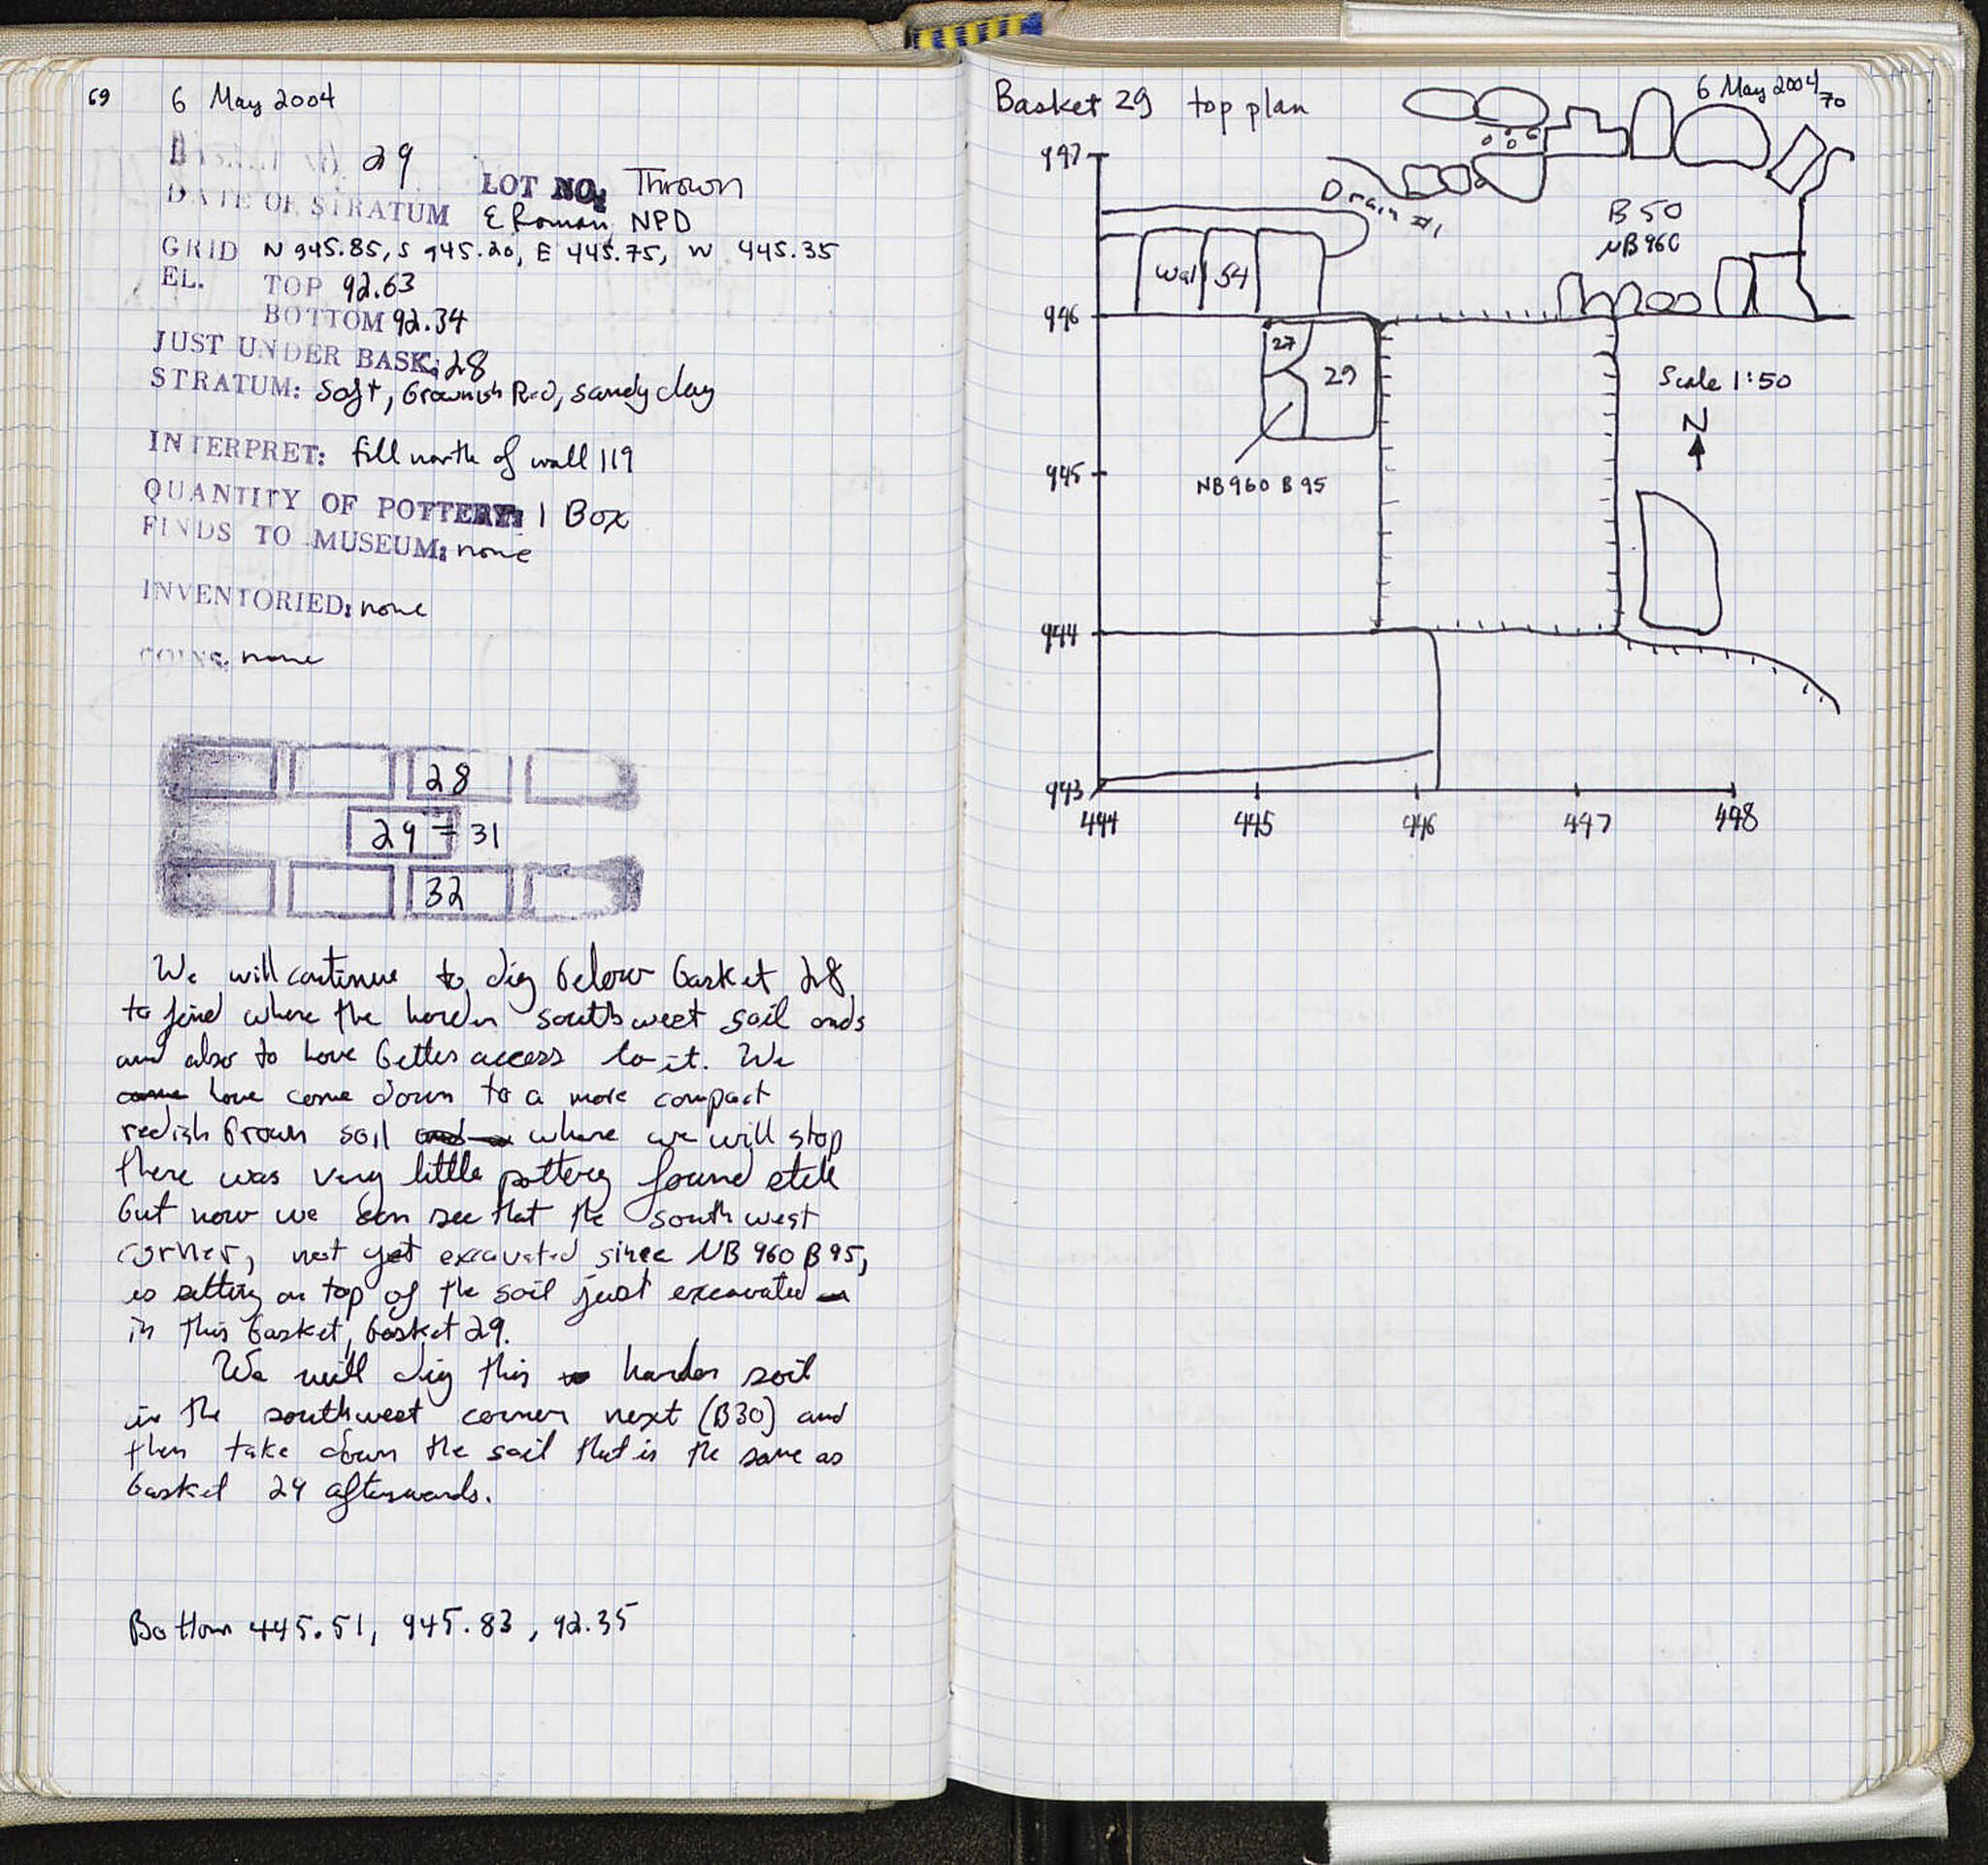 69 6 May 2004
29
LOT NO: Thrown
DATE OF STRATUM E Roman, NPD
GRID N 945.85, S 945.20, E 445.75, W 445.35
EL. TOP 92.63
BOTTOM 92.34
JUST UNDER BASK: 28
STRATUM: Soft, brownish Red, sandy clay
INTERPRET: fill north of wall 119
QUANTITY OF POTTERY: 1 Box
FINDS TO MUSEUM: none
INVENTORIED: none
COINS: none
28
29 = 31
32
We will continue to dig below basket 28
to find where the harder southwest soil ends
and also to have better access to it. We
came have come down to a more compact
redish brown soil and where we will stop
there was very little pottery found
but now we can see that the southwest
corner, not yet excavated since NB 960 B 95,
is sitting on top of the soil just excavated
in this basket, basket 29.
We will dig this harder soil
in the southwest corner next (B30) and
then take down the soil that is the same as
basket 29 afterwards.
Bottom 445.51, 945.83, 92.35
Basket 29 top plan
6 May 2004 70
997
Drain #1
B 50
NB 960
Wall 54
946
27
29
Scale 1:50
N
945
NB 960 B 95
944
943
444 445 446 447 448